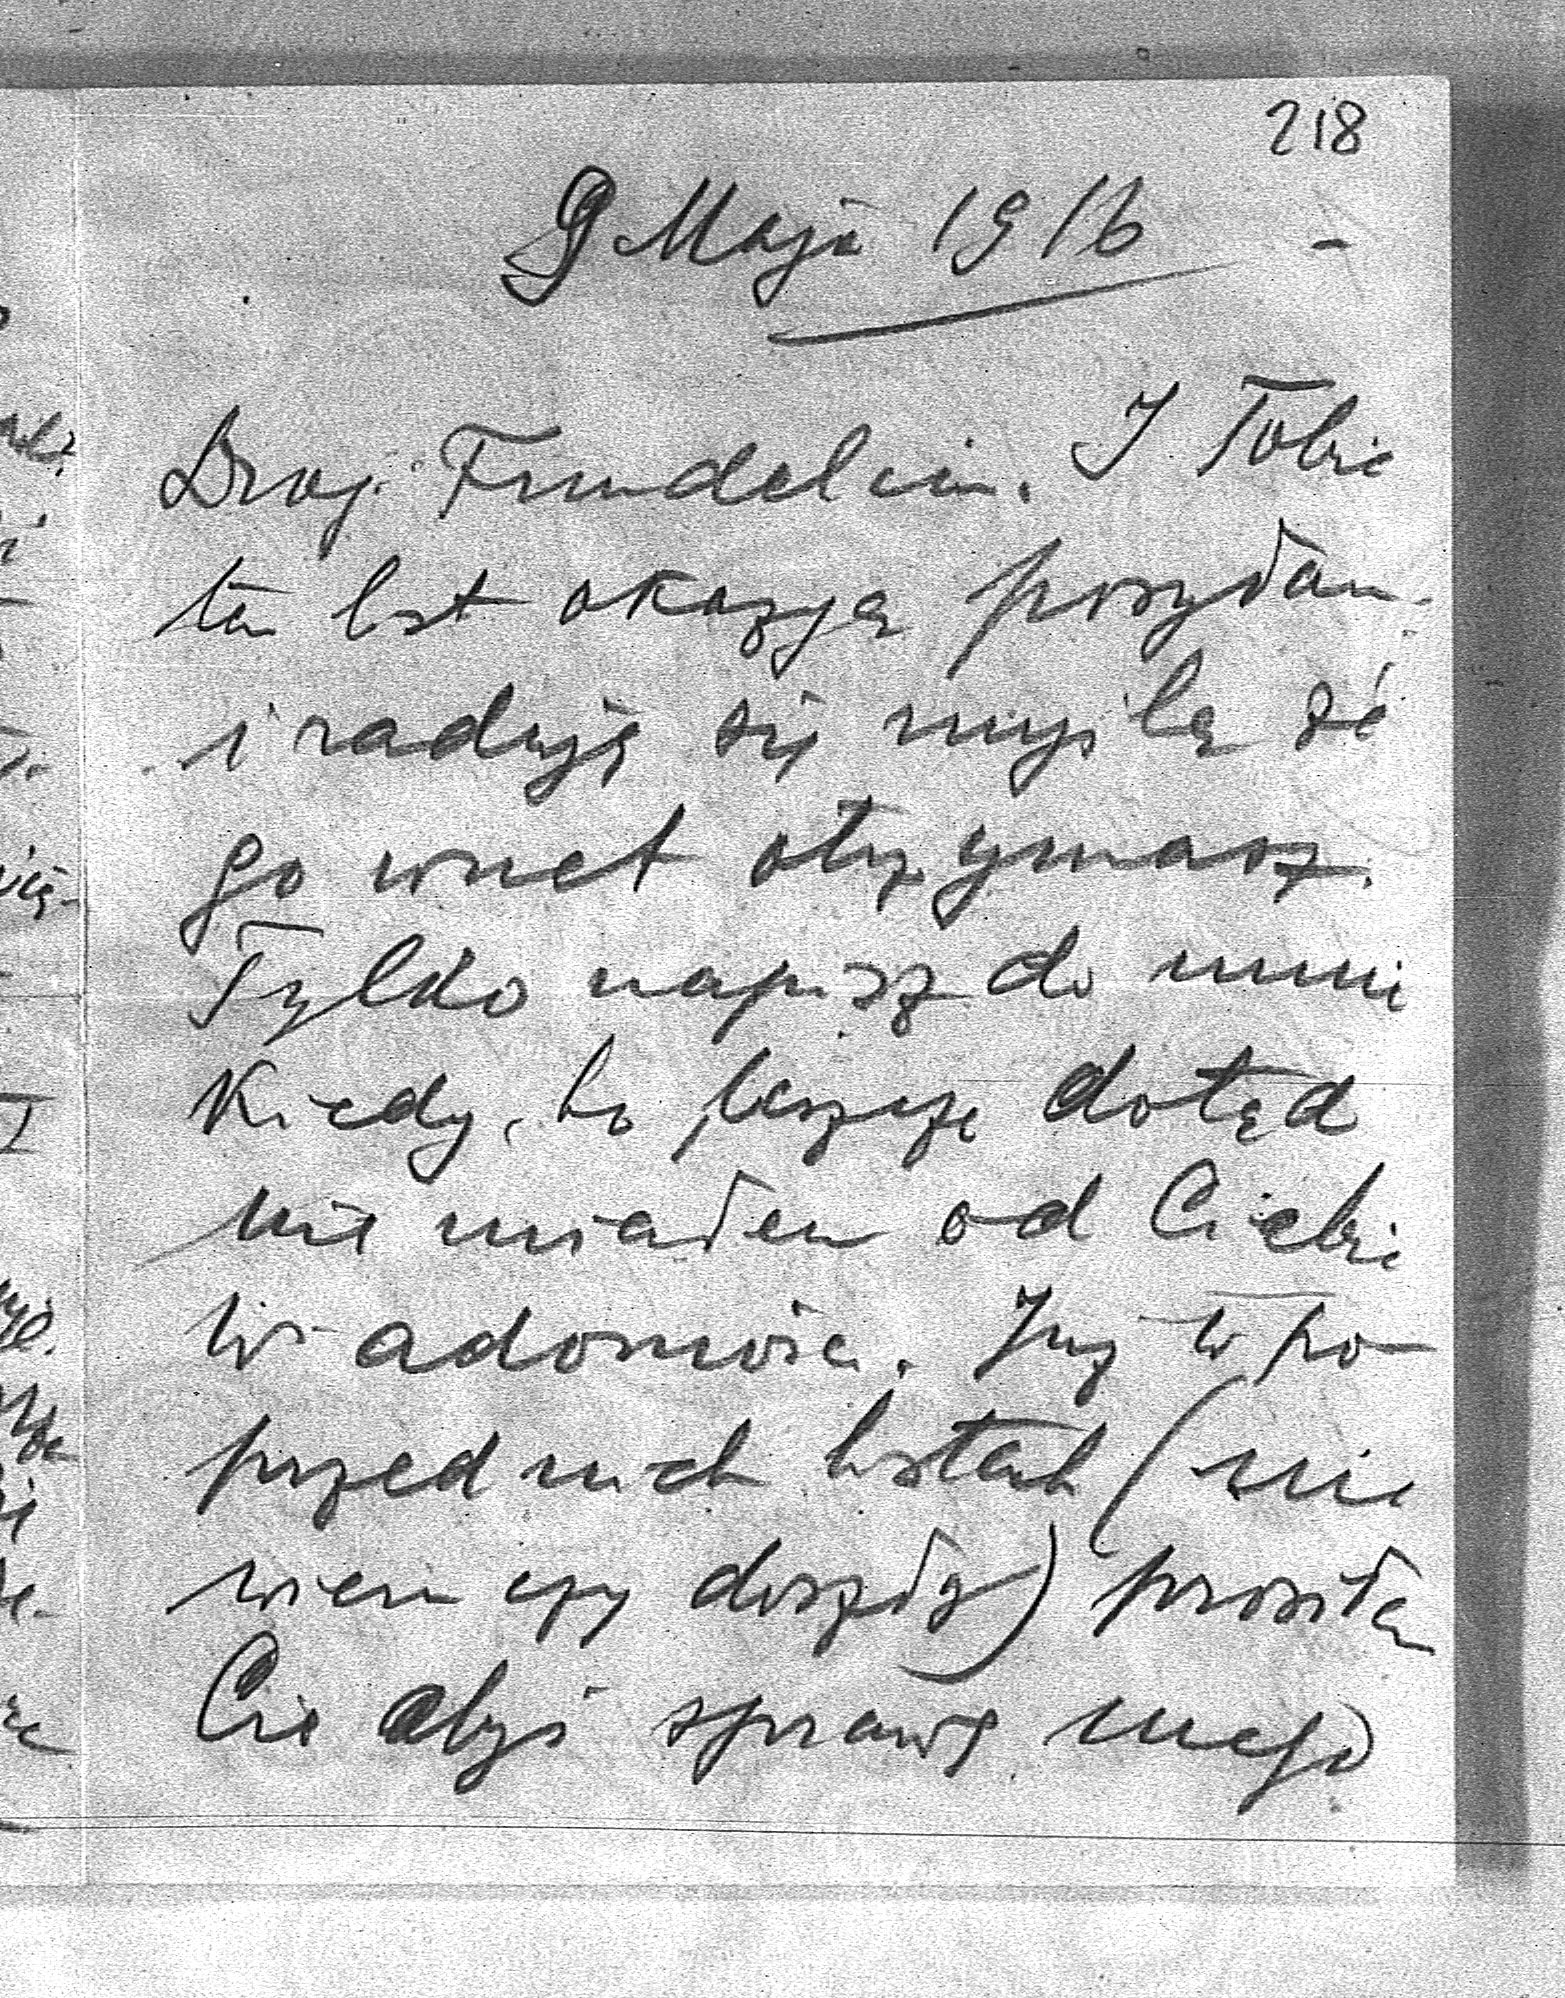 218
9 Maja 1916 -
Drogi Frundelciu. I Tobie
ten list okazyą posyłam
i raduję się myślą że
go wnet otrzymasz.
Tylko napisz do mnie
Kiedy, bo jeszcze dotąd
nie miałem od Ciebie
wiadomości. Już w po-
przednich listach (nie
wiem czy doszły) prosiłem
Cię abyś sprawę mego